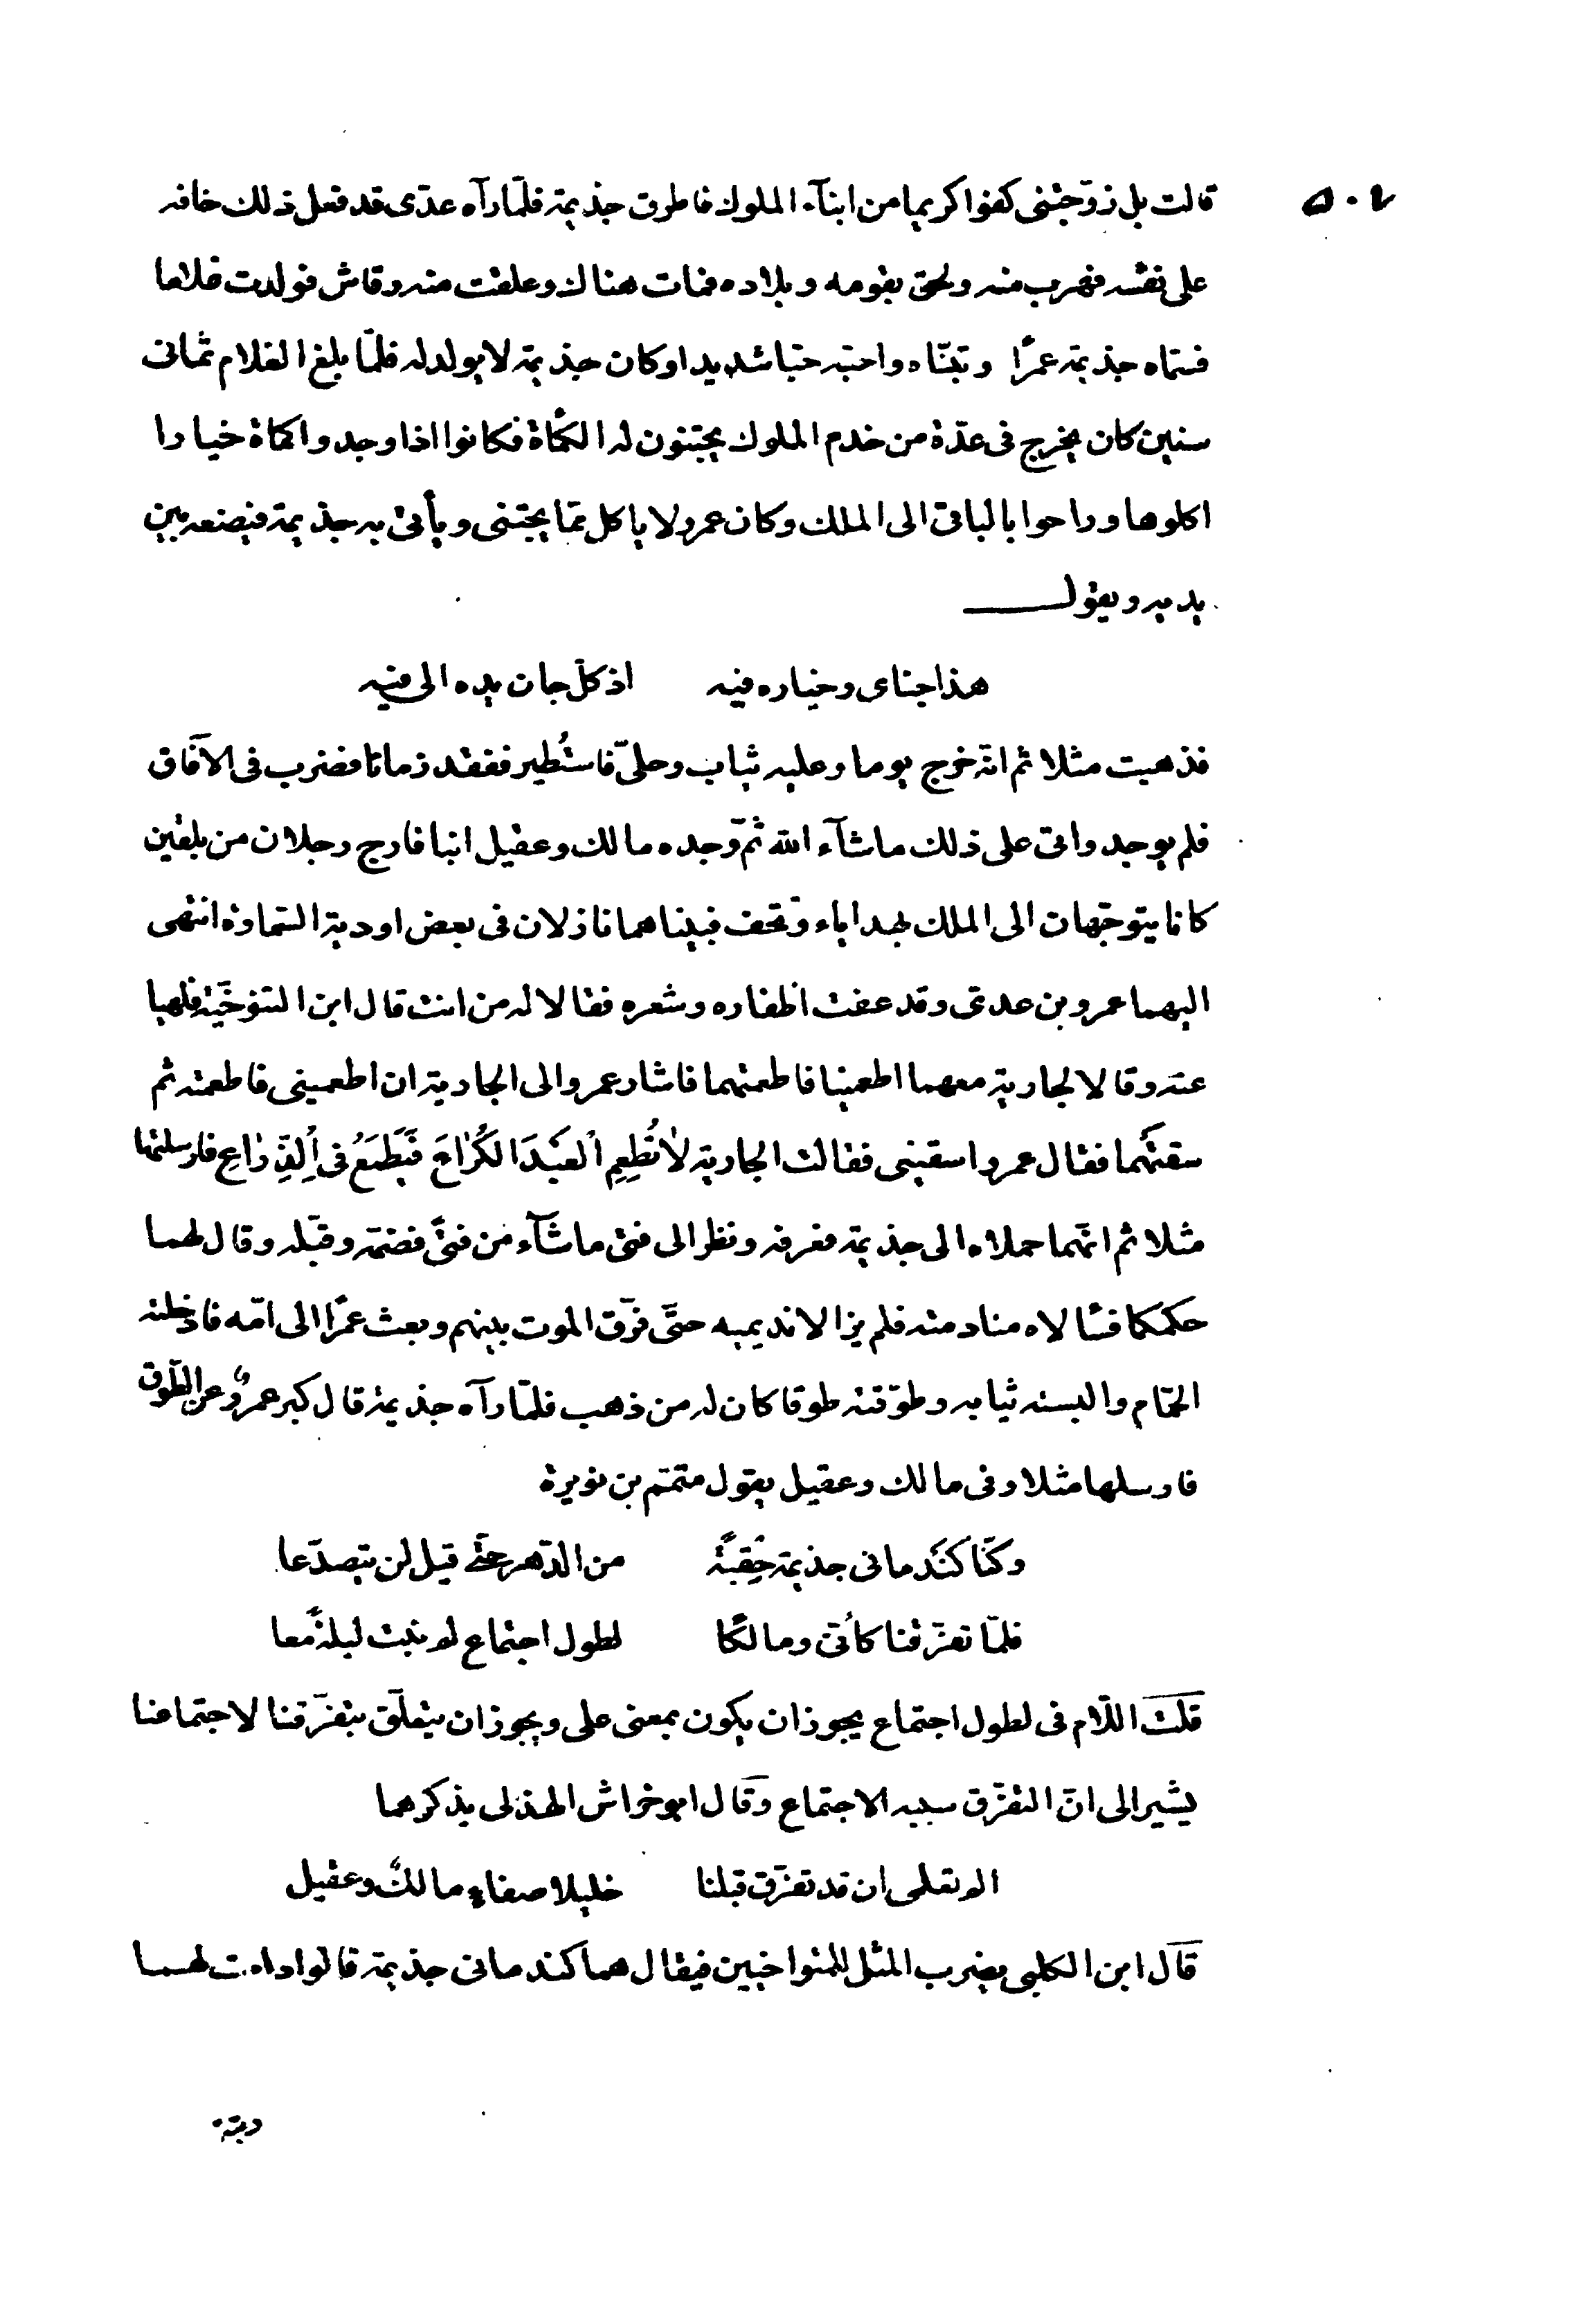 ٥٠٤
قالت بل زوّجتنى كفوا كريما من ابنآء الملوك فاطرق جذيمة فلمّا رآه عدّى قد فعل ذلك خافه
على نفسه فهرب منه ولحق بقومه وبلاده فمات هناك وعلقت منه رقاش فولدت غلاما
فسمّاه جذيمة عمرًا وتبنّاه واحبّه حبّا شديدا وكان جذيمة لا يولد له فلمّا بلغ الغلام ثمانى
سنين كان يخرج فى عدّة من خدم الملوك يجتنون له الكمأة فكانوا اذا وجدوا كماة خيارا
اكلوها وراحوا بالباقى الى الملك وكان عمرو لا ياكل ممّا يجتنى ويأتى به جذيمة فيضعه بين
يديه ويقول
هذا جناى وخياره فيه اذ كلّ جان يده الى فيه
فذهبت مثلا ثم انّه خرج يوما وعليه ثياب وحلىّ فاستُطير ففقد زمانا فضرب فى الآفاق
فلم يوجد واتى على ذلك ماشآء الله ثمّ وجده مالك وعقيل ابنا فارج رجلان من بلقين
كانا يتوجّهان الى الملك بهدايا وتحف فبيناهما نازلان فى بعض اودية السّماوة انتهى
اليهما عمرو بن عدى وقد عفت اظفاره وشعره فقالا له من انت قال ابن التنوخيّة فلهيا
عنه وقالا لجارية معهما اطعمينا فاطعمتهما فاشار عمرو الى الجارية ان اطعمينى فاطعمته ثم
سقتهُما فقال عمرو اسقينى فقالت الجارية لٰا تُطْعِمِ الْعَبْدَ الكُرٰاعَ فَيَطْمَعُ فى الذِّرٰاعِ فارسلتها
مثلا ثم انّهما حملاه الى جذيمة فعرفه ونظر الى فتى ماشآء من فتىً فضمّه وقبّله وقال لهما
حكمكما فسئالاه منادمته فلم يزالا نديميه حتّى فرّق الموت بينهم وبعث عمرًا الى امّه فادخلته
الحمّام والبسته ثيابه وطوّقته طوقا كان له من ذهب فلمّا رآه جذيمة قال كبر عمرٌو عن الطّوق
فارسلها مثلا وفى مالك وعقيل يقول متمّم بن نويرة
وكنّا كنَدمانى جذيمة حِقبةً من الدّهر حتّى قيل لن يتصدّعا
فلمّا تفرّقنا كأنّى ومالكًا لطول اجتماع لم نبت ليلةً معا
قلت اللّام فى لطول اجتماع يجوز ان يكون بمعنى على ويجوز ان يتعلّق بتفرّقنا لاجتماعنا
يشير الى انّ التفرّق سببه الاجتماع وقال ابو خراش الهذلى يذكرهما
الم تعلمى ان قد تفرّق قبلنا خليلا صفاءٍ مالكٌ وعقيل
قال ابن الكلبى يضرب المثل للمتواخيين فيقال هما كندمانى جذيمة قالوا دامت لهما